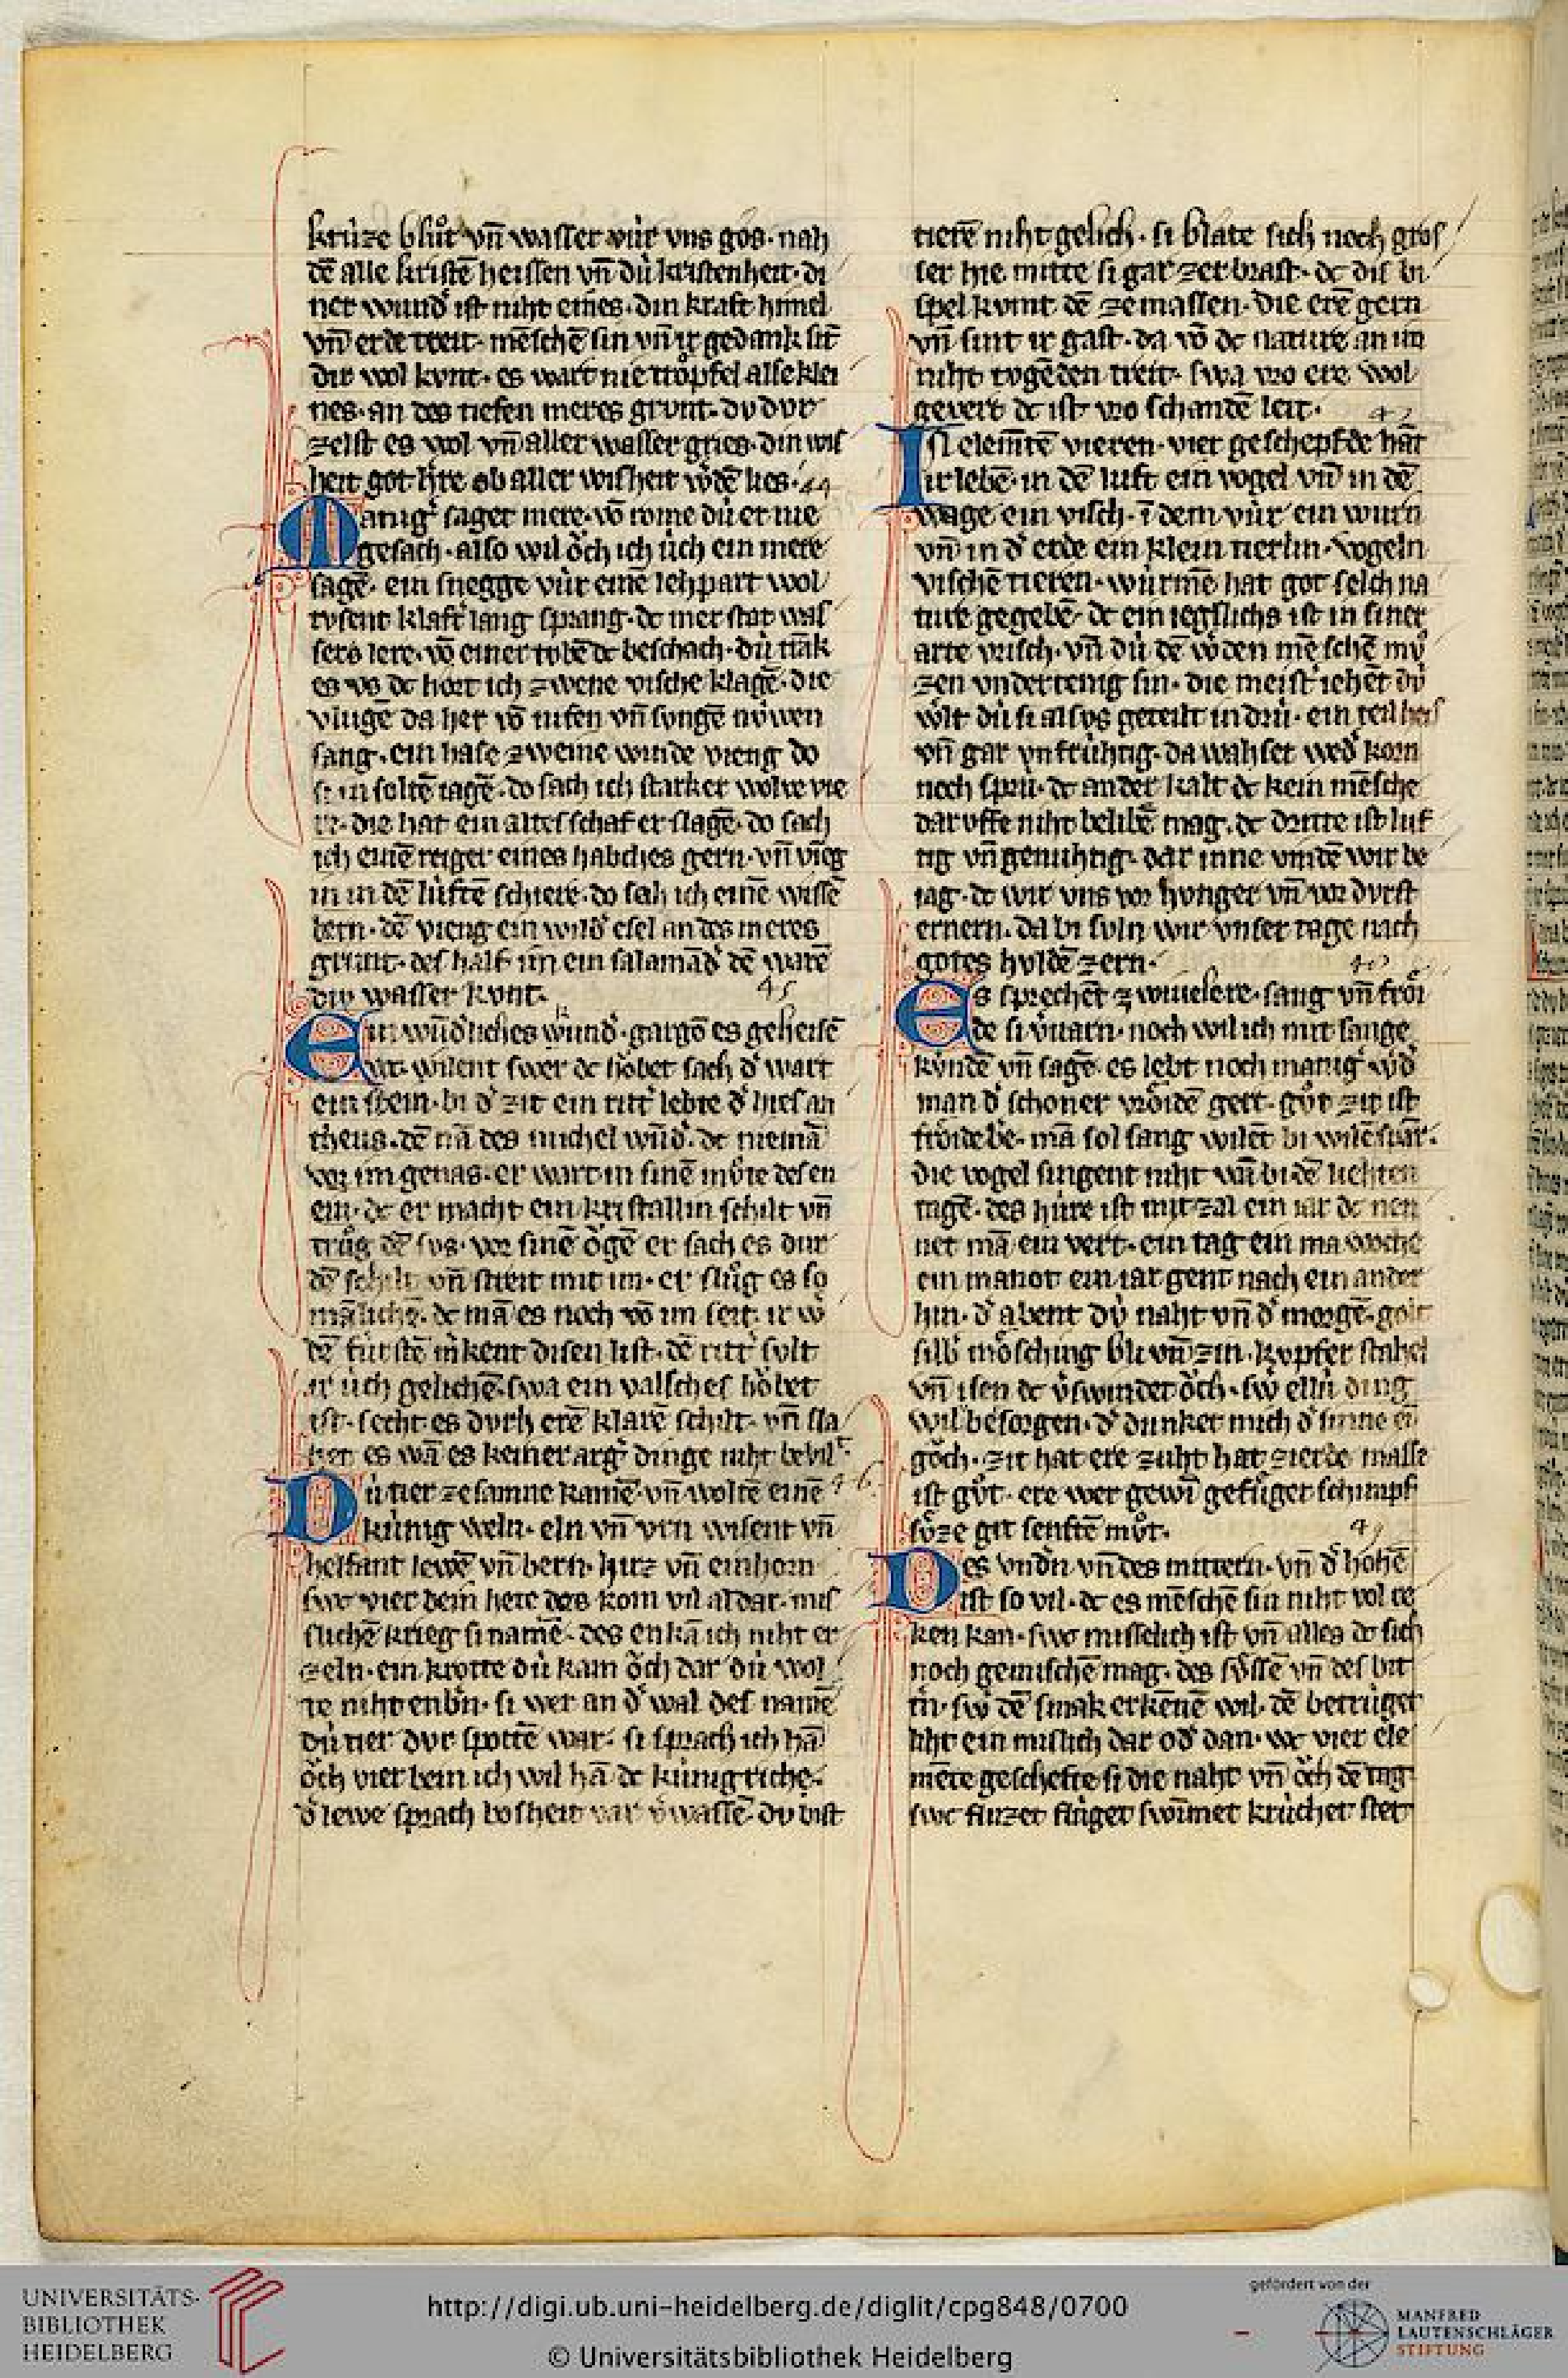 krúze blůt vn̄ wasser vúr vns gos· nah
dē alle kristē heissen vn̄ dú kristenheit· di
ner wund' ist niht eines· din kraft himel
vn̄ erde treit· mēschē sin vn̄ ir gedank sit
dir wol kvnt· es wart nie tröpfel alse klei
nes· an des tiefen meres grvnt· dv dvr
zelst es wol vn̄ aller wasser gries· din wis
heit got h're ob aller wisheit w'dē lies· 44
Manig' saget mere· vō rome dú er nie
gesach· also wil öch ich úch ein mere
sagē· ein snegge vúr einē lehpart wol
tvsent klaft' lang sprang· dc mer stat was
sers lere· vō einer tvbē dc beschach· dú trāk
es vs dc hort ich zwene vische klagē· die
vlugē da her vō nifen vn̄ svngē núwen
sang· ein hase zweine winde vieng do
si in soltē iagē· do sach ich starker wolve vie
re· die hat ein altes schaf erslagē· do sach
ich einē reiger eines habches gern· vn̄ vieg
in in dē lúftē schiere· do sah ich einē wissē
bern· dē vieng ein wild' esel an des meres
grunt· des half im ein salamād' dē warē
dú wasser kvnt· 45
Ein wūd'liches kund'· gargō es geheisē
wc· wilent swer dc höbet sach d' wart
ein stein· bi d' zit ein ritt' lebte d' hies an
theus· dē nā des michel wūd'· dc niemā
vor im genas· er wart in sinē mv̊te des en
ein· dc er macht ein kristallin schilt vn̄
trůg dē svs· vor sinē ögē er sach es dur
dē schilt vn̄ streit mit im· er slůg es so
māliche· dc mā es noch vō im seit· ir w'
dē fúrstē m'kent disen list· dē ritt' svlt
ir úch gelichē· swa ein valsches höbet
ist· secht es dvrh erē klarē schilt· vn̄ sla
het es wā es keiner arg' dinge niht bevilt
Dú tier zesamne kamē· vn̄ woltē einē 46
kúnig weln· eln vn̄ vrn wisent vn̄
helfant lewē vn̄ bern· hirz vn̄ einhorn
swc vier bein hete des kom vil al dar· mis
slichē krieg si namē· des enkā ich niht er
zeln· ein krotte dú kam öch dar dú wol
te niht enb'n· si wer an d' wal des namē
dú tier dvr spottē war· si sprach ich hā
öch vier bein ich wil hā dc kúnigriche·
d' lewe sprach bosheit var v'wassē· dv bist
tierē niht gelich· si blate sich noch gros
ser hie mitte si gar zerbrast· dc dis bi
spel kvmt dē ze massen· die erē gern
vn̄ sint ir gast· da vō dc nature an im
niht tvgēden treit· swa vro ere wol
gevert dc ist vro schandē leit· 47
In elemētē vieren· vier geschepfde hāt
ir lebē· in dē luft ein vogel vn̄ in dē
wage ein visch· ī dem vúr ein wurn
vn̄ in d' erde ein klein tierlin· vogeln
vischē tieren· wúrmē hat got selch na
ture gegebē· dc ein iegslichs ist in siner
arte vrisch· vn̄ dú dē w'den mēschē mv̊
zen vndertenig sin· die meist' iehēt dú
w'lt dú si alsvs geteilt in drú· ein teil heis
vn̄ gar vnfrúhtig· da wahset wed' korn
noch spru· dc ander kalt dc kein mēsche
dar vffe niht belibē mag· dc dritte ist luf
tig vn̄ genuhtig· dar inne vindē wir be
iag· dc wir vns vor hvnger vn̄ vor dvrst
ernern· da bi svln wir vnser tage nach
gotes hvldē zern· 48
Es sprechēt zwiuelere· sang vn̄ fröi
de si v'uarn· noch wil ich mit sange
kvndē vn̄ sagē· es lebt noch manig' w'd'
man d' schoner vröidē gert· gv̊t zit ist
fröidebe· mā sol sang wilēt bi wilē spar·
die vogel singent niht wā bi dē liehten
tagē· des húre ist mit zal ein iar dc nen
net mā ein vert· ein tag ein ma woche
ein manot ein iar gent nach ein ander
hin· d' abent dú naht vn̄ d' morgē· golt
silb' mösching bli vn̄ zin· kvpfer stahel
vn̄ isen dc v'swindet öch· sw' ellú ding
wil besorgen· d' dunket mich d' sinne ein
göch· zit hat ere zuht hat zierde masse
ist gv̊t· ere wer gewī gefůger schimpf
sv̊ze git senftē mv̊t· 49
Des vnd'n vn̄ des mitteln· vn̄ d' hohē
ist so vil· dc es mēschē sin niht vol re
ken kan· swc misselich ist vn̄ alles dc sich
noch gemischē mag· des sv̊ssē vn̄ des bit
t'n· sw' dē smak erkēnē wil· dē betrúget
liht ein mislich dar od' dan· wc vier ele
mēte geschefte si die naht vn̄ öch dē tag
swc fluzet flúget swimmet krúchet stet
UNIVERSITÄTS-
BIBLIOTHEK
HEIDELBERG
http://digi.ub.uni-heidelberg.de/diglit/cpg848/0700
© Universitätsbibliothek Heidelberg
gefördert von der
MANFRED
LAUTENSCHLÄGER
STIFTUNG